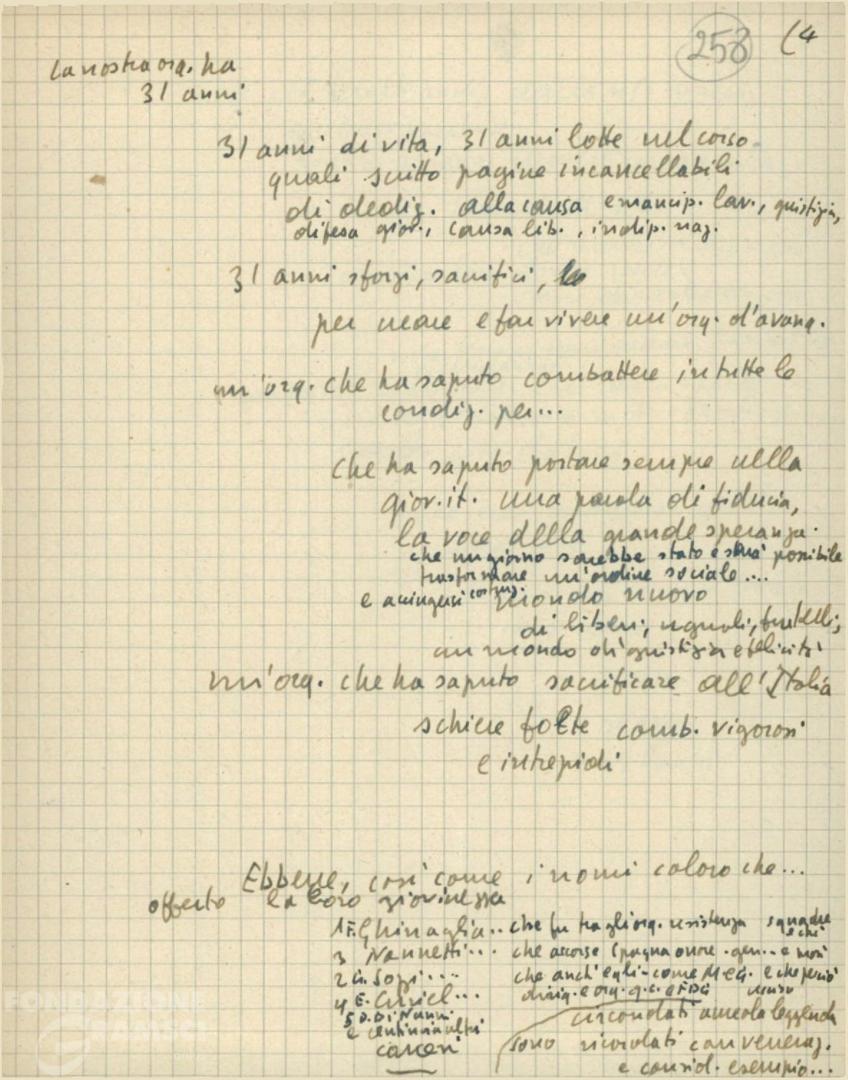 258 (4
La nostra org. ha
31 anni
31 anni di vita, 31 anni lotte nel corso
quali scritto pagine incancellabili
di dediz. alla causa emancip. lav., giustizia,
difesa giov., causa lib., indip. naz.
31 anni sforzi, sacrifici,
per creare e far vivere un'org. d'avang.
un'org. che ha saputo combattere in tutte le
condiz. per...
che ha saputo portare sempre nella
giov. it. una parola di fiducia,
la voce della grande speranza.
che un giorno sarebbe stato e sarà possibile
trasformare un'ordine sociale....
e accingersi costruz. mondo nuovo
di liberi, uguali, fratelli,
un mondo di giustizia e felicità
un'org. che ha saputo sacrificare all'Italia
schiere folte comb. vigorosi
e intrepidi
Ebbene, così come i nomi coloro che...
offerto la loro giovinezza
1 F. Ghinaglia.. che fu tra gli org. resistenza squadre
3 Nannetti... che accorse Spagna onore gen... e morì
2 G. Sozi.... che anch'egli come
4 E. Curiel... dirig. e org. e FDG
5 D. Di Nanni circondati aureola leggenda
e centinaia altri sono ricordati con veneraz.
carceri e consid. esempio...
FONDAZIONE